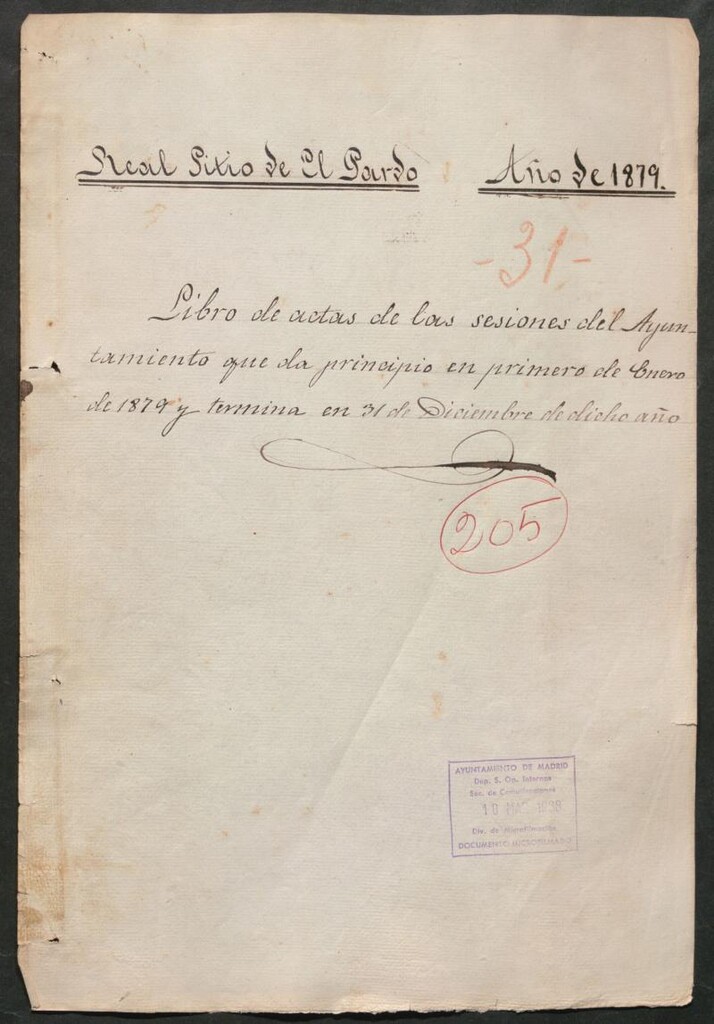 Real Sitio de El Pardo Año de 1879.
- 31 -
Libro de actas de las sesiones del Ayun-
tamiento que da principio en primero de Enero
de 1879 y termina en 31 de Diciembre de dicho año
205
AYUNTAMIENTO DE MADRID
Dep. S. Op. Internos
Sec. de
Div. de Microfilmación
DOCUMENTO MICROFILMADO